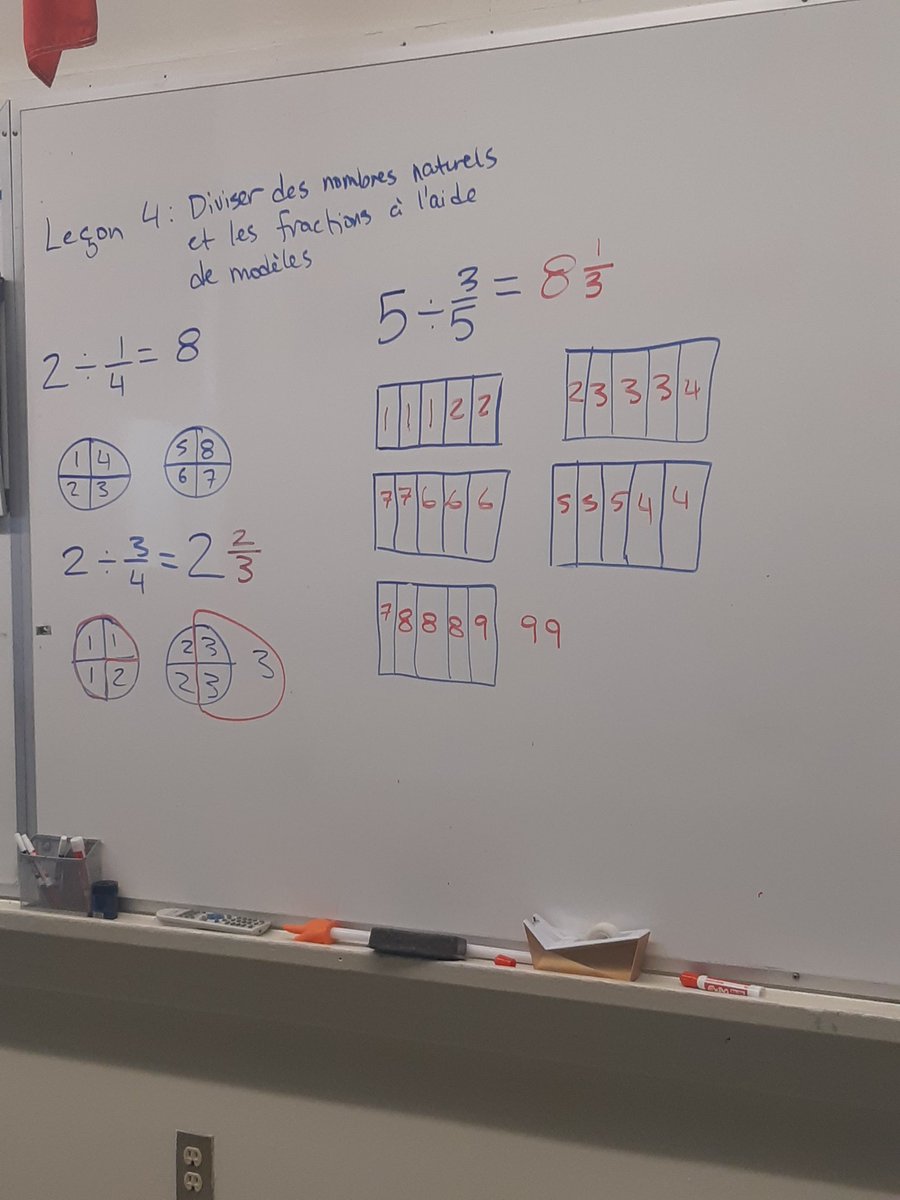 Leçon 4: Diviser des nombres naturels
et les fractions à l'aide
de modèles
2 ÷ 1/4 = 8
1 4
2 3
5 8
6 7
2 ÷ 3/4 = 2 2/3
1 1
1 2
2 3
2 3
3
5 ÷ 3/5 = 8 1/3
1 1 1 2 2
2 3 3 3 4
7 7 6 6 6
5 5 5 4 4
7 8 8 8 9
99